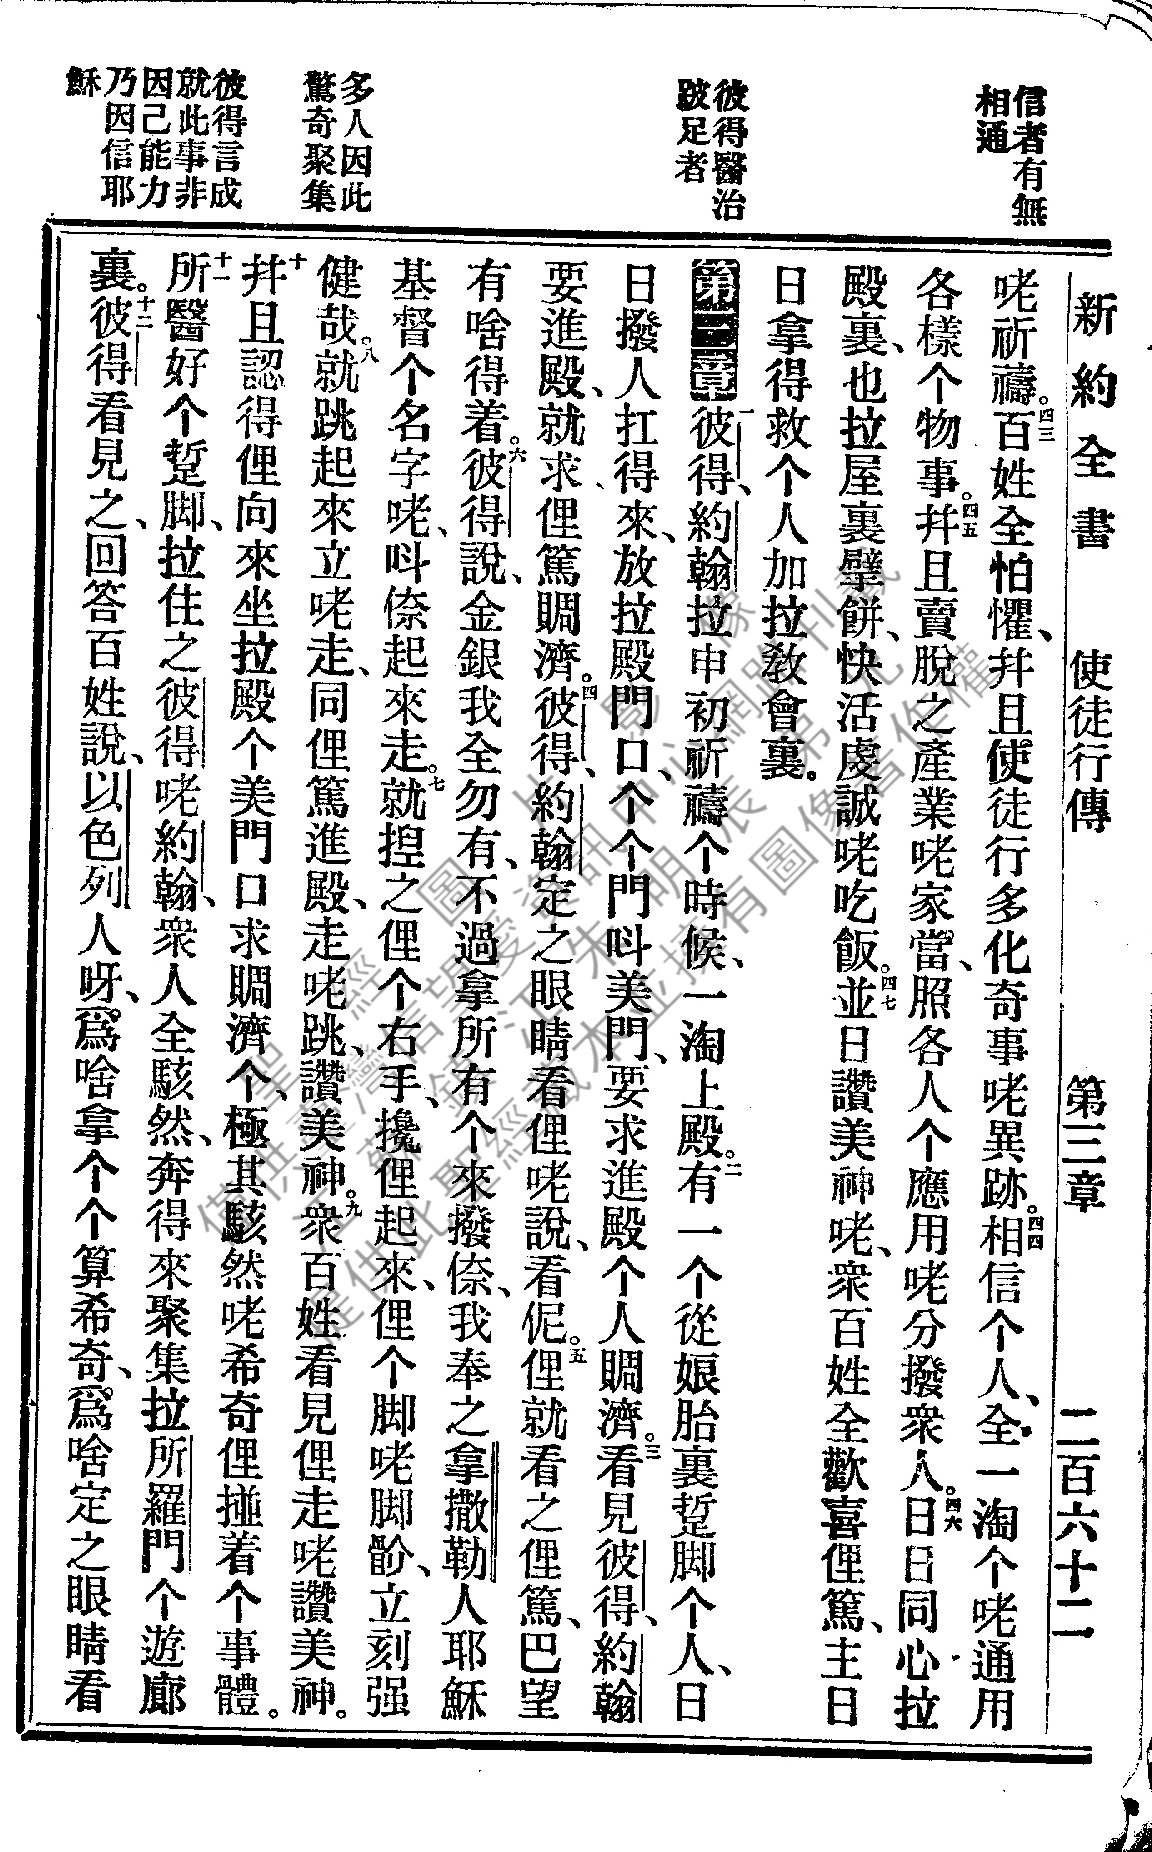 新約全書 使徒行傳 第三章 二百六十二
信者有無
相通
彼得醫治
跛足者
多人因此
驚奇聚集
彼得言成
就此事非
因己能力
乃因信耶
穌
咾祈禱。四三百姓全怕懼、幷且使徒行多化奇事咾異跡。四四相信个人、全一淘个咾通用
各樣个物事。四五幷且賣脫之產業咾家當、照各人个應用咾分撥衆人。四六日日同心拉
殿裏、也拉屋裏擘餅、快活虔誠咾吃飯。四七並日讚美神咾、衆百姓全歡喜俚篤、主日
日拿得救个人加拉教會裏。
第三章 一彼得、約翰拉申初祈禱个時候、一淘上殿。二有一个從娘胎裏踅脚个人、日
日撥人扛得來、放拉殿門口、个个門呌美門、要求進殿个人賙濟。三看見彼得、約翰
要進殿、就求俚篤賙濟。四彼得、約翰定之眼睛看俚咾說、看伲。五俚就看之俚篤、巴望
有啥得着。六彼得說、金銀我全勿有、不過拿所有个來撥倷、我奉之拿撒勒人耶穌
基督个名字咾、呌倷起來走。七就揑之俚个右手、攙俚起來、俚个脚咾脚骱、立刻强
健哉。八就跳起來立咾走、同俚篤進殿、走咾跳、讚美神。九衆百姓看見俚走咾讚美神。
十幷且認得俚向來坐拉殿个美門口求賙濟个、極其駭然咾希奇俚碰着个事體。
十一所醫好个踅脚、拉住之彼得咾約翰、衆人全駭然、奔得來聚集拉所羅門个遊廊
裏。十二彼得看見之、回答百姓說、以色列人呀、爲啥拿个个算希奇、爲啥定之眼睛看
聖經圖